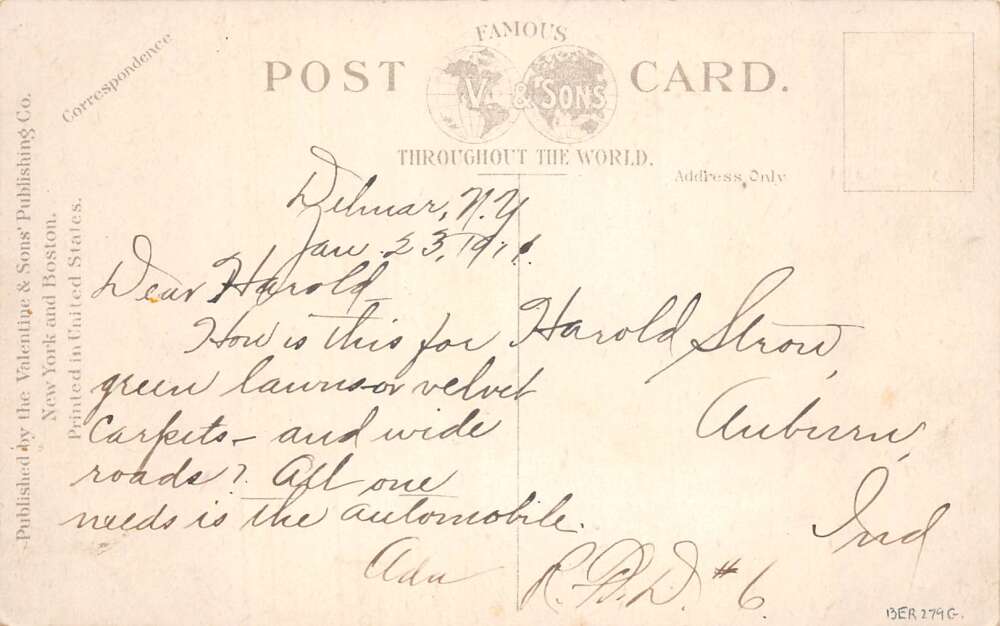 FAMOUS
POST CARD.
V. & SONS
THROUGHOUT THE WORLD.
Correspondence
Address Only
Published by the Valentine & Sons' Publishing Co.
New York and Boston.
Printed in United States.
Delmar, N.Y
Jan. 23, 1911.
Dear Harold
How is this for
green lawns or velvet
carpets – and wide
roads? All one
needs is the automobile.
Ada
Harold Strow,
Auburn,
Ind
R.F.D. #6.
BER 279G.